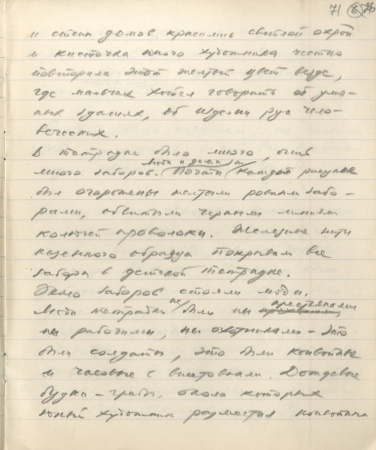 71
и стены домов красились светлой охрой
и кисточка юного художника честно
повторяла этот желтый цвет везде,
где мальчик хотел говорить об
зданиях, об изделии рук чело-
веческих.
В тетрадке было много, очень
много заборов. Люди и дома на
Почти каждом рисунке
был огорожены желтыми ровными забо-
рами, обвитыми черными линиями
колючей проволоки. Железные нити
казенного образца покрывали все
заборы в детской тетрадке.
Около заборов стояли люди.
Люди тетрадки не были ни крестьянами
ни рабочими, ни охотниками – это
были солдаты, это были конвойные
и часовые с винтовками. Дождевые
будки – грибы, около которых
юный художник разместил конвойных